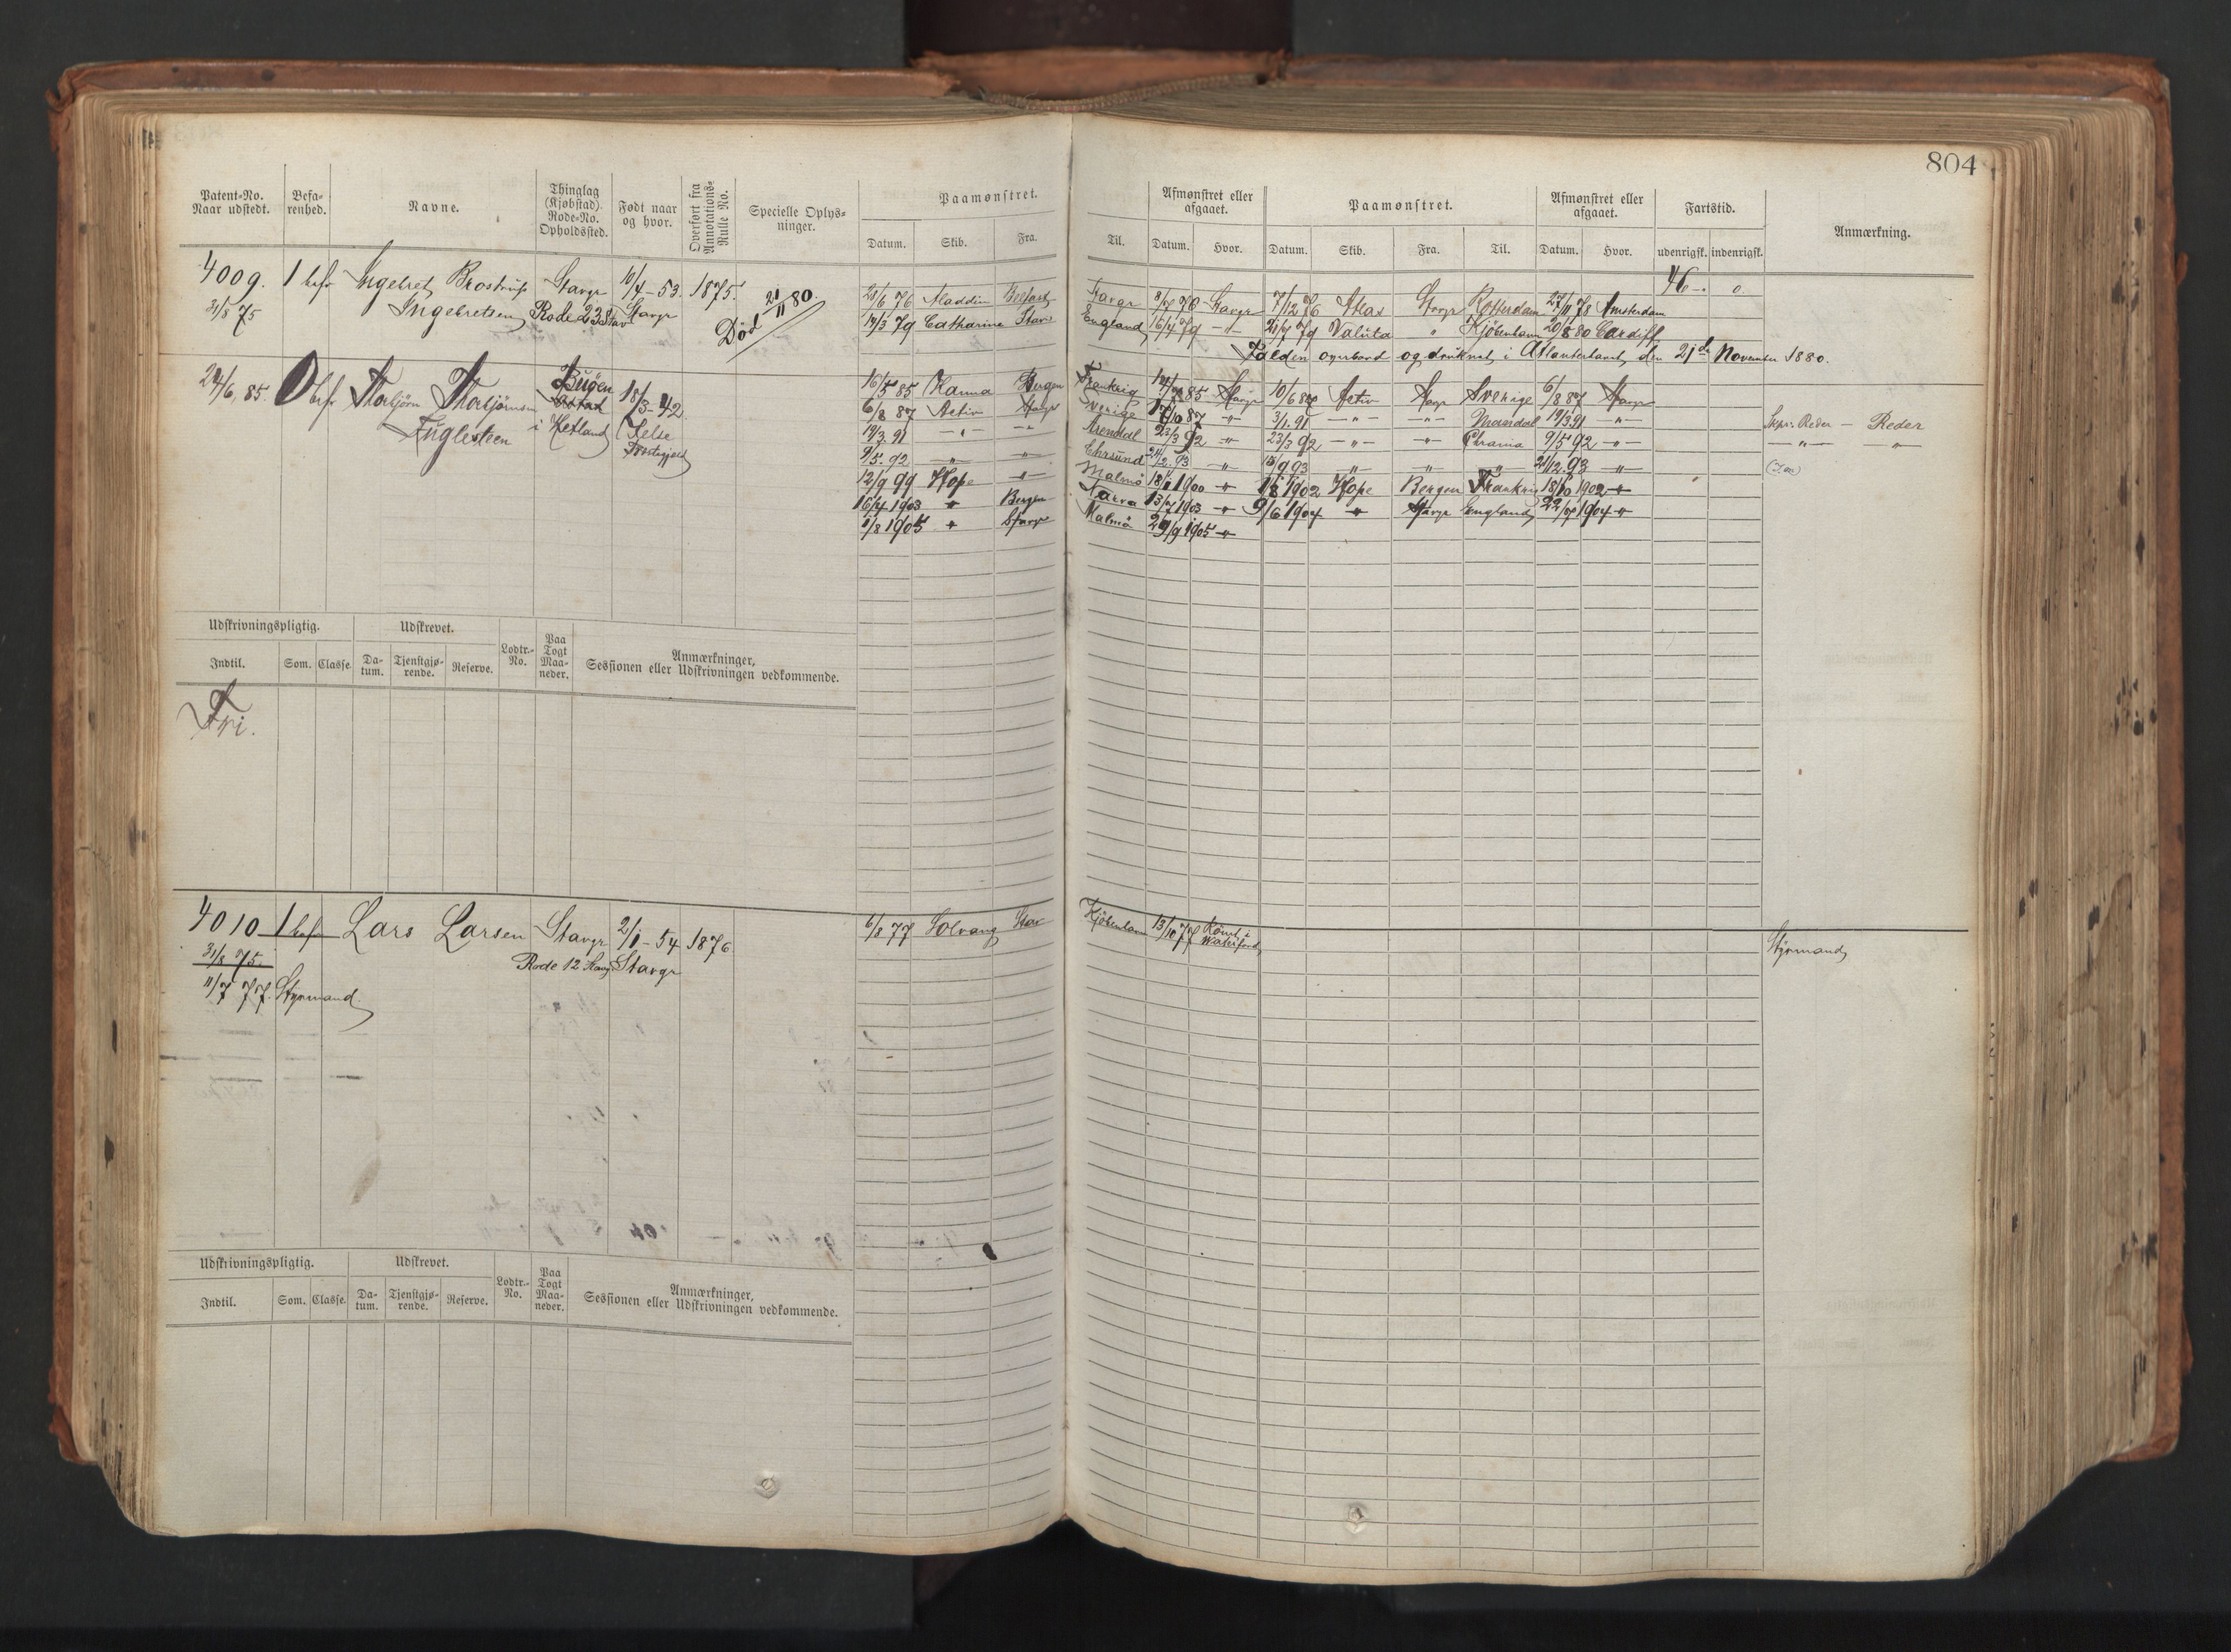 804
Patent-No. Naar udstedt. Befa-renhed. Navne. Thinglag (Kjøbstad). Rode-No. Opholdssted. Født naar og hvor. Overført fra Annotations-Rulle No. Specielle Oplys-ninger. Paamønstret. Datum. Skib. Fra.
Til. Afmønstret eller afgaaet. Datum. Hvor. Paamønstret. Datum. Skib. Fra. Til. Afmønstret eller afgaaet. Datum. Hvor. Fartstid. udenrigsk. indenrigsk. Anmærkning.
4009. 1 bef Ingebret Brostrup Stavgr 10/4-53. 1875.
31/8 75 Ingebretsen Rode 23 Stav Stavgr Død 21/11 80.
46 - 0
21/6 76 Aladdin Belfast Stavgr 8/7 76 Stavgr 7/12 76 Atlas Stavgr Rotterdam 27/11 78 Amsterdam
19/3 79 Catharine Stav England 16/4 79 -d- 21/7 79 Valuta " Kjöbenhavn 20/8 80 Cardiff
Falden overbord og druknet i Atlanterhavet den 21de November 1880.
24/6, 85. 0 bef Thorbjörn Thorbjörnsen Buöen 18/3-42.
Fuglesteen i Hetland Jelse Præstegjeld
16/5 85 Hanna Bergen Frankrig 85 Stavgr 10/6 Activ Stavgr Sverige 6/8 87 Stavgr
6/8 87 Activ Stavgr Sverige 17/10 87 -"- 3/1. 91 -"- -"- Mandal 19/3 91 -"- Skpr. Reder - Reder
19/3. 91 -"- -"- Arendal 23/3 92 -"- 23/3 92 -"- -"- Chrania 9/5 92 -"- -"- -"-
9/5. 92 -"- -"- Ekrsund 21/12. 93 -"- 15/9 93 -"- -"- -"- 21/12. 93 -"-
12/9 99 Hope -"- Malmö 18/1 1900 -"- 1/8 1902 Hope Bergen Frankrig 18/10 1902 -"-
16/4 1903 -"- Bergen Narva 13/7 1903 -"- 9/6 1904 -"- Stavgr England 22/7 1904 -"-
1/8 1905 -"- Stavgr Malmö 29/9 1905 -"-
Udskrivningspligtig. Udskrevet. Lodtr.-No. Paa Togt Maa-neder. Anmærkninger, Sessionen eller Udskrivningen vedkommende.
Indtil. Som. Classe. Da-tum. Tjenstgjø-rende. Reserve.
Fri.
4010 1 bef Lars Larsen Stavgr 2/1-54 1876. 6/8 77 Solvang Stav Kjöbenhavn 13/10 77 Rømt i Waterford Styrmand
31/8 75. Rode 12 Stavg Stavgr
11/7 77. Styrmand
Udskrivningspligtig. Udskrevet. Lodtr.-No. Paa Togt Maa-neder. Anmærkninger, Sessionen eller Udskrivningen vedkommende.
Indtil. Som. Classe. Da-tum. Tjenstgjø-rende. Reserve.